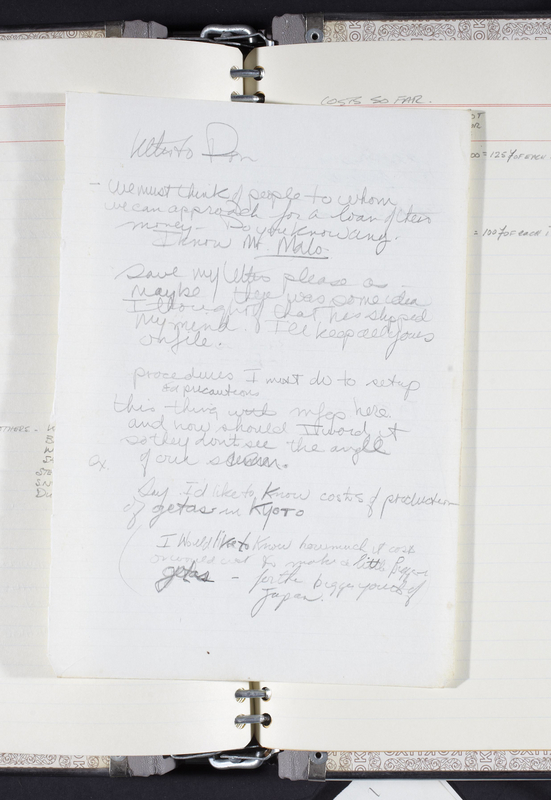 COSTS SO FAR.
= 125% OF EACH
= 100% OF EACH
Letter to Don
- We must think of people to whom
we can approach for a loan of their
money - Do you know any.
I know Mr. Malo.
Save my letters please as
maybe there was some idea
I thought of that has slipped
my mind. I'll keep all yours
on file.
procedures I must do to setup
or precautions
this thing with mfgs here
and how should I word it
so they dont see the angle
of our
ex.
Say I'd like to know costs of production
of getas in Kyoto
I would like to know how much it cost
to make a little bigger
getas - for the bigger youth of
Japan.